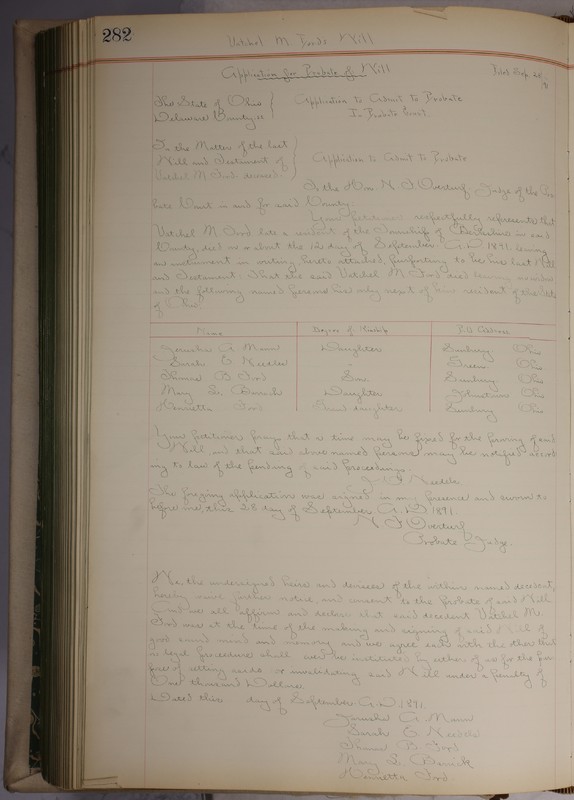 282
M. Fords Will
Application for Probate of Will
Filed Sep. 28, 91
The State of Ohio
Delaware County, ss
Application to Admit to Probate
In Probate Court
In the Matter of the last
Will and Testament of
M Ford deceased
Application to Admit to Probate
To the Hon. N. F. Overturf Judge of the Pro-
bate Court in and for said County.
Your Petitioner respectfully represents that
M. Ford late a resident of the Township of in said
County, died on or about the day of September A.D. 1891, leaving
an instrument in writing, hereto attached, purporting to be her last Will
and Testament. That the said M Ford died leaving no widow
and the following named persons her only next of kin resident of the State
of Ohio.
Name Degree of Kinship P.O. Address
A. Mann Daughter Sunbury Ohio
Sarah E " Green Ohio
Thomas B Ford Son Sunbury Ohio
Mary L. Daughter Johnstown Ohio
Henrietta Ford Grand daughter Sunbury Ohio
Your petitioner prays that a time may be fixed for the proving of said
Will, and that said above named persons may be notified accord-
ing to law of the pending of said proceedings.
The forgoing application was signed in my presence and sworn to
before me, this 28 day of September A.D. 1891.
N. F. Overturf
Probate Judge.
We, the undersigned heirs and devisees of the within named decedent,
hereby waive further notice, and consent to the probate of said Will.
And we all affirm and declare that said decedent M.
Ford was at the time of the making and signing of said Will of
good sound mind and memory and we agree each with the other that
no legal procedure shall ever be instituted by either of us for the pur-
pose of setting aside or invalidating said Will under a penalty of
One thousand Dollars.
Dated this day of September A.D. 1891.
A. Mann
Sarah E.
Thomas B. Ford
Mary L.
Henrietta Ford.